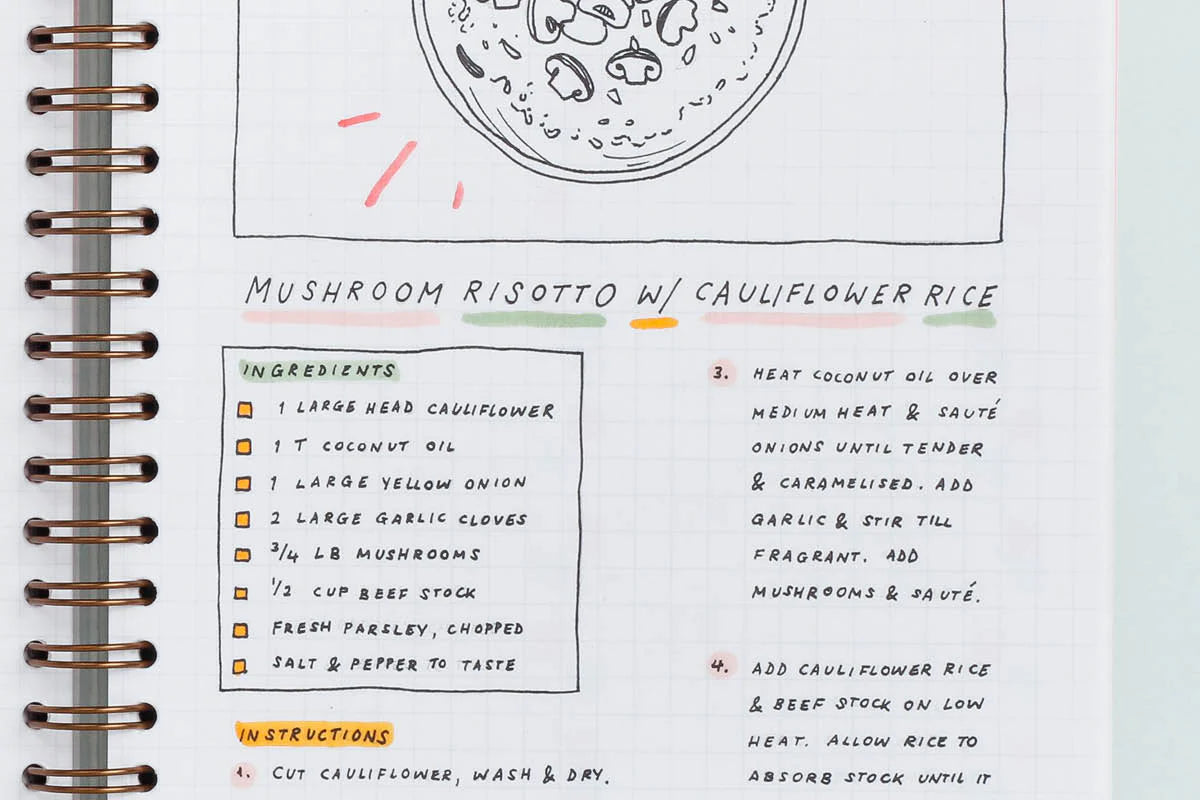 MUSHROOM RISOTTO W/ CAULIFLOWER RICE
INGREDIENTS
1 LARGE HEAD CAULIFLOWER
1 T COCONUT OIL
1 LARGE YELLOW ONION
2 LARGE GARLIC CLOVES
3/4 LB MUSHROOMS
1/2 CUP BEEF STOCK
FRESH PARSLEY, CHOPPED
SALT & PEPPER TO TASTE
INSTRUCTIONS
1. CUT CAULIFLOWER, WASH & DRY.
3. HEAT COCONUT OIL OVER
MEDIUM HEAT & SAUTÉ
ONIONS UNTIL TENDER
& CARAMELISED. ADD
GARLIC & STIR TILL
FRAGRANT. ADD
MUSHROOMS & SAUTÉ.
4. ADD CAULIFLOWER RICE
& BEEF STOCK ON LOW
HEAT. ALLOW RICE TO
ABSORB STOCK UNTIL IT